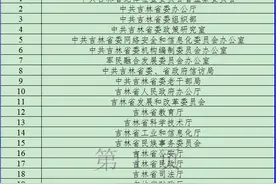 2 中共吉林省委办公厅
3 中共吉林省委组织部
4 中共吉林省委政策研究室
5 中共吉林省委网络安全和信息化委员会办公室
6 中共吉林省委机构编制委员会办公室
7 军民融合发展委员会办公室
8 中共吉林省委、省政府信访局
9 中共吉林省委老干部局
10 吉林省人民政府办公厅
11 吉林省发展和改革委员会
12 吉林省教育厅
13 吉林省科学技术厅
14 吉林省工业和信息化厅
15 吉林省民族事务委员会
16 吉林省公安厅
17 吉林省民政厅
18 吉林省司法厅
19